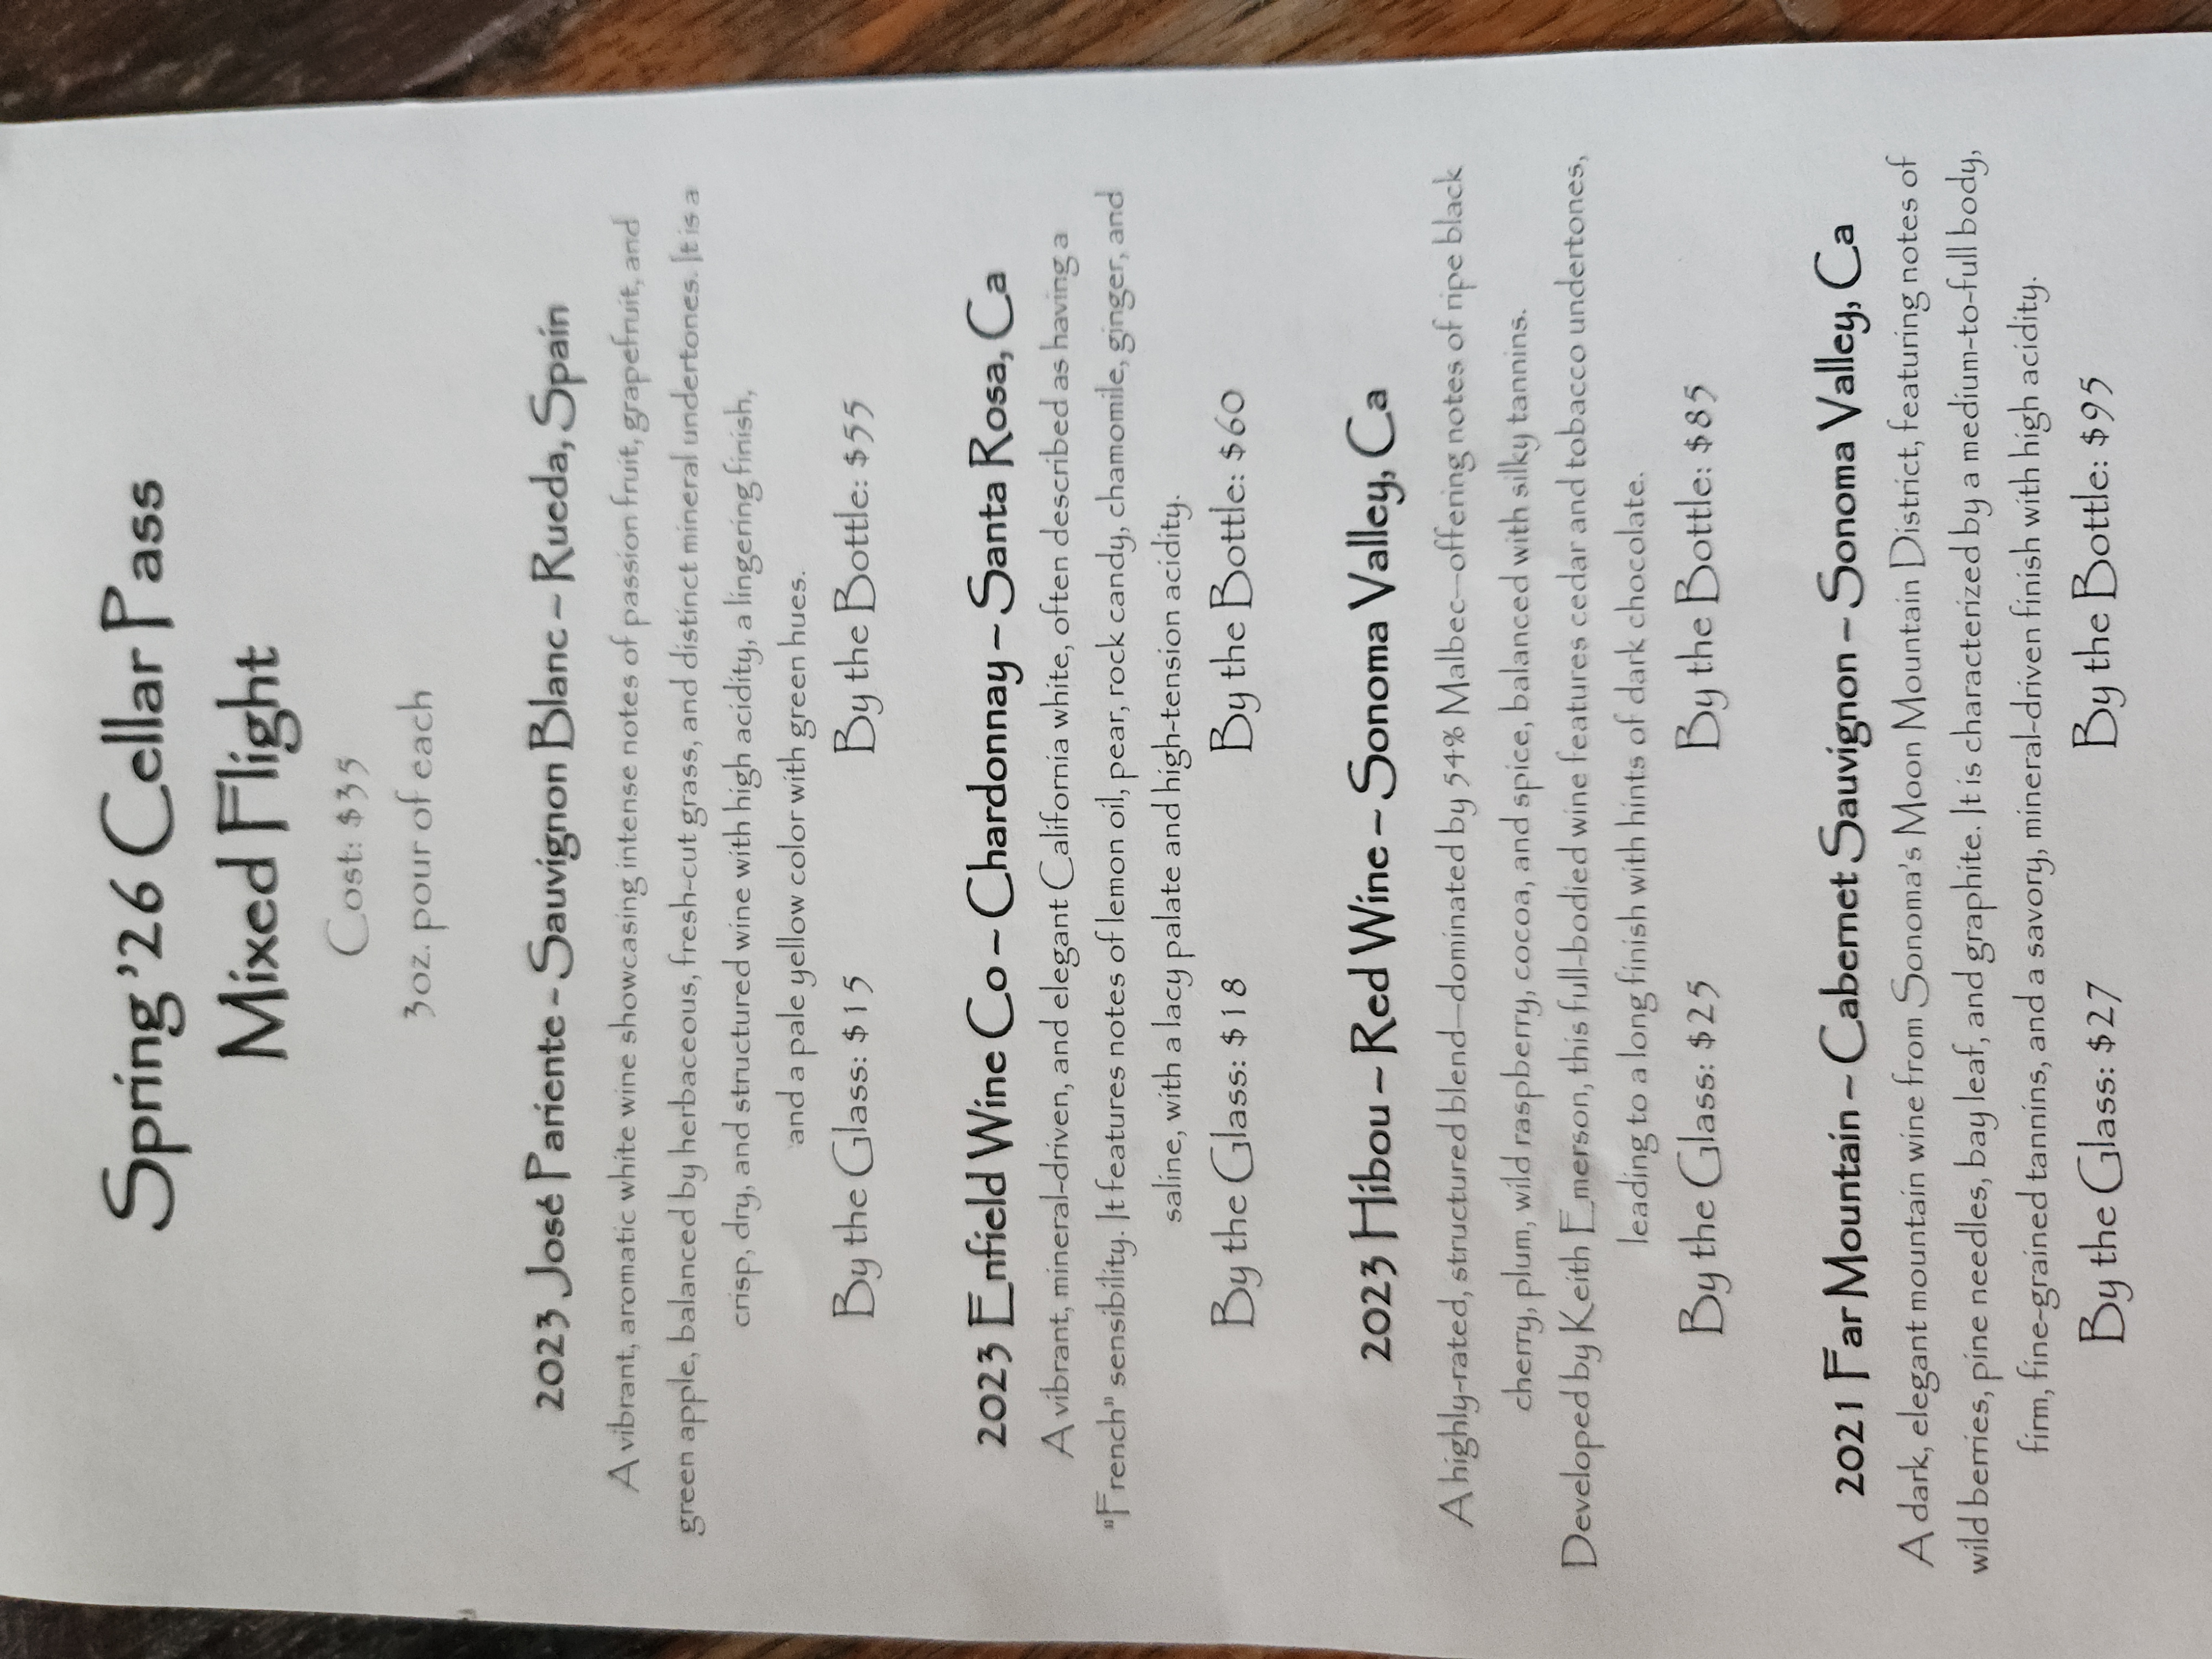 Spring '26 Cellar Pass
Mixed Flight
Cost: $35
3oz. pour of each
2023 José Pariente ~ Sauvignon Blanc ~ Rueda, Spain
A vibrant, aromatic white wine showcasing intense notes of passion fruit, grapefruit, and
green apple, balanced by herbaceous, fresh-cut grass, and distinct mineral undertones. It is a
crisp, dry, and structured wine with high acidity, a lingering finish,
and a pale yellow color with green hues.
By the Glass: $15 By the Bottle: $55
2023 Enfield Wine Co ~ Chardonnay ~ Santa Rosa, Ca
A vibrant, mineral-driven, and elegant California white, often described as having a
"French" sensibility. It features notes of lemon oil, pear, rock candy, chamomile, ginger, and
saline, with a lacy palate and high-tension acidity.
By the Glass: $18 By the Bottle: $60
2023 Hibou ~ Red Wine ~ Sonoma Valley, Ca
A highly-rated, structured blend—dominated by 54% Malbec—offering notes of ripe black
cherry, plum, wild raspberry, cocoa, and spice, balanced with silky tannins.
Developed by Keith Emerson, this full-bodied wine features cedar and tobacco undertones,
leading to a long finish with hints of dark chocolate.
By the Glass: $25 By the Bottle: $85
2021 Far Mountain ~ Cabernet Sauvignon ~ Sonoma Valley, Ca
A dark, elegant mountain wine from Sonoma's Moon Mountain District, featuring notes of
wild berries, pine needles, bay leaf, and graphite. It is characterized by a medium-to-full body,
firm, fine-grained tannins, and a savory, mineral-driven finish with high acidity.
By the Glass: $27 By the Bottle: $95